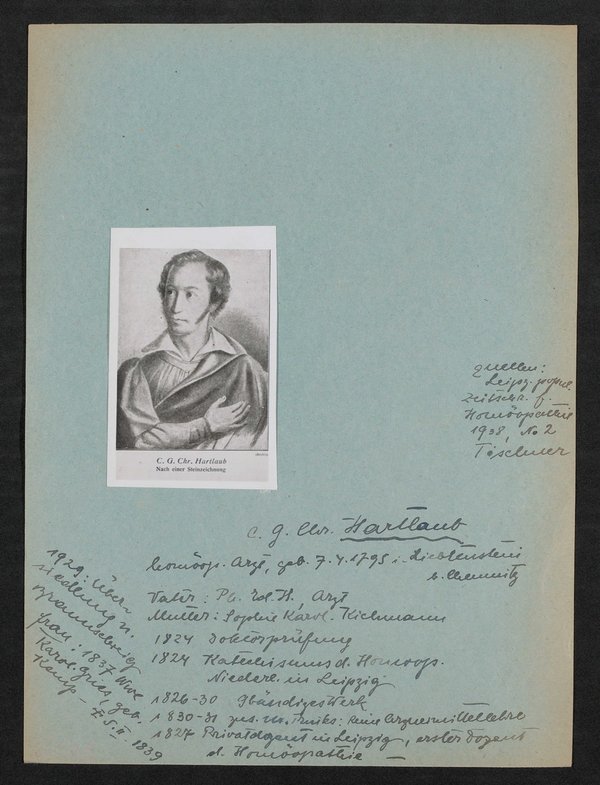 C. G. Chr. Hartlaub
Nach einer Steinzeichnung
Quellen:
Leipz. popul.
Zeitschr. f.
Homöopathie
1938, No 2
Täschner
C. G. Chr. Hartlaub
homöop. Arzt, geb. 7.4.1795 i. Lichtenstein
b. Chemnitz
Vater: H., Arzt
Mutter: Sophie Karol. Eichmann
1824 Doktorprüfung
1824 Katechismus d. Homöop.
Niederl. in Leipzig
1826-30 9bändiges Werk
1830-31 zus. m. Trinks: Reine Arzneimittellehre
1827 Privatdozent in Leipzig, erster Dozent
d. Homöopathie —
1929: Über-
siedlung n.
Braunschweig
Frau: 1837 Wwe
Karol. Gries, geb.
Kemp —
1839